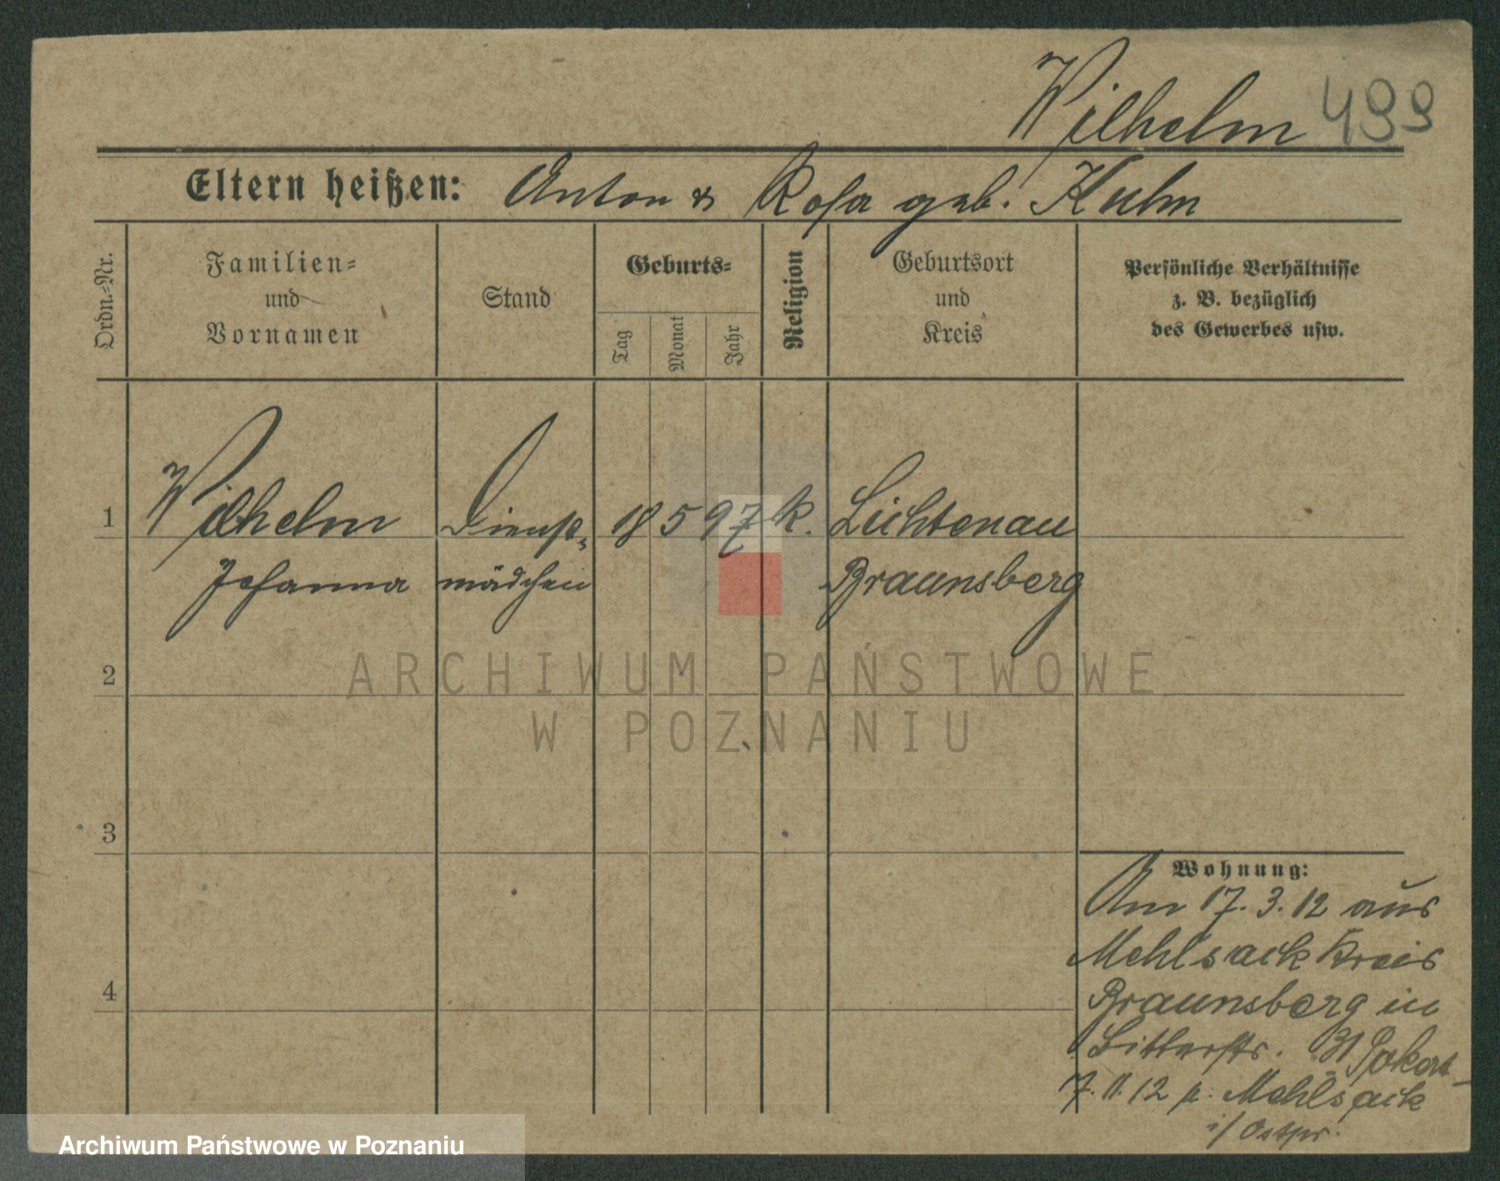 Wilhelm 499
Eltern heißen: Anton & Rosa geb. Kuhn
Ordn.-Nr.
Familien-
und
Vornamen
Stand
Geburts-
Tag
Monat
Jahr
Religion
Geburtsort
und
Kreis
Persönliche Verhältnisse
z. B. bezüglich
des Gewerbes usw.
1 Wilhelm Dienst- 18 5 97 k. Lichtenau
Johanna mädchen Braunsberg
ARCHIWUM PAŃSTWOWE
2
W POZNANIU
3
Wohnung:
Am 17. 3. 12 aus
Mehlsack Kreis
4
Braunsberg in
31
7. 11. 12 n. Mehlsack
i/ Ostpr.
Archiwum Państwowe w Poznaniu